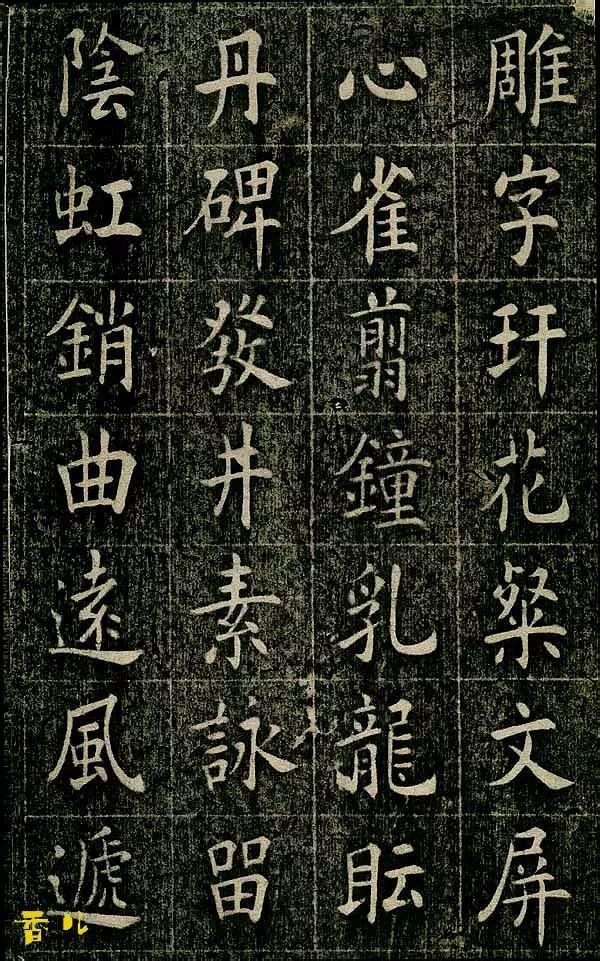 雕字玕花粲文屏
心雀翦鐘乳龍眃
丹碑發井素詠㽞
陰虹銷曲遠風遞
香儿